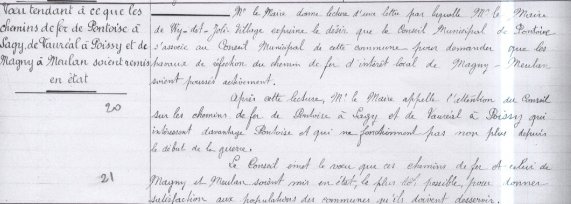 Vœu tendant à ce que les
chemins de fer de Pontoise à
Lagy, de Vauréal à Poissy et de
Magny à Meulan soient remis
en état
20
21
Mr le Maire donne lecture d'une lettre par laquelle Mr le Maire
de Wy-dit-Joli-Village exprime le désir que le Conseil Municipal de Pontoise
s'associe au Conseil Municipal de cette commune pour demander que les
travaux de réfection du chemin de fer d'intérêt local de Magny-Meulan
soient poussés activement.
Après cette lecture, Mr le Maire appelle l'attention du Conseil
sur les chemins de fer de Pontoise à Lagy et de Vauréal à Poissy qui
intéressent davantage Pontoise et qui ne fonctionnent pas non plus depuis
le début de la guerre.
Le Conseil émet le vœu que ces chemins de fer et celui de
Magny et Meulan soient mis en état, le plus tôt possible, pour donner
satisfaction aux populations des communes qu'ils doivent desservir.